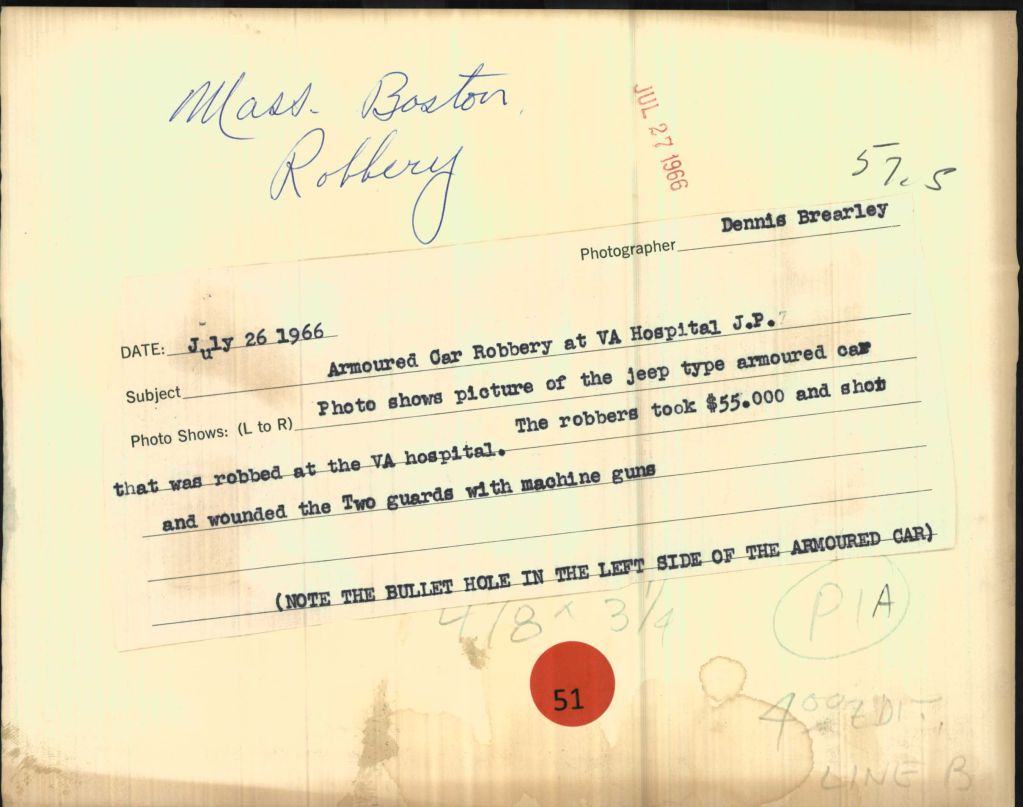 Mass. Boston,
Robbery
JUL 27 1966
57.5
Photographer Dennis Brearley
DATE: July 26 1966
Subject Armoured Car Robbery at VA Hospital J.P.
Photo Shows: (L to R) Photo shows picture of the jeep type armoured car
that was robbed at the VA hospital. The robbers took $55.000 and shot
and wounded the Two guards with machine guns
(NOTE THE BULLET HOLE IN THE LEFT SIDE OF THE ARMOURED CAR)
4/8 x 3 1/4
P1A
51
400 EDIT.
LINE B